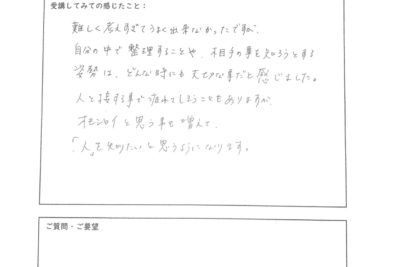 受講してみての感じたこと：
難しく考えすぎてうまく出来なかったですが、
自分の中で整理することや、相手の事を知ろうとする
姿勢は、どんな時にも大切な事だと感じました。
人と接する事で疲れてしまうこともありますが、
オモシロイと思う事も増えて、
「人」を知りたいと思うようになります。
ご質問・ご要望